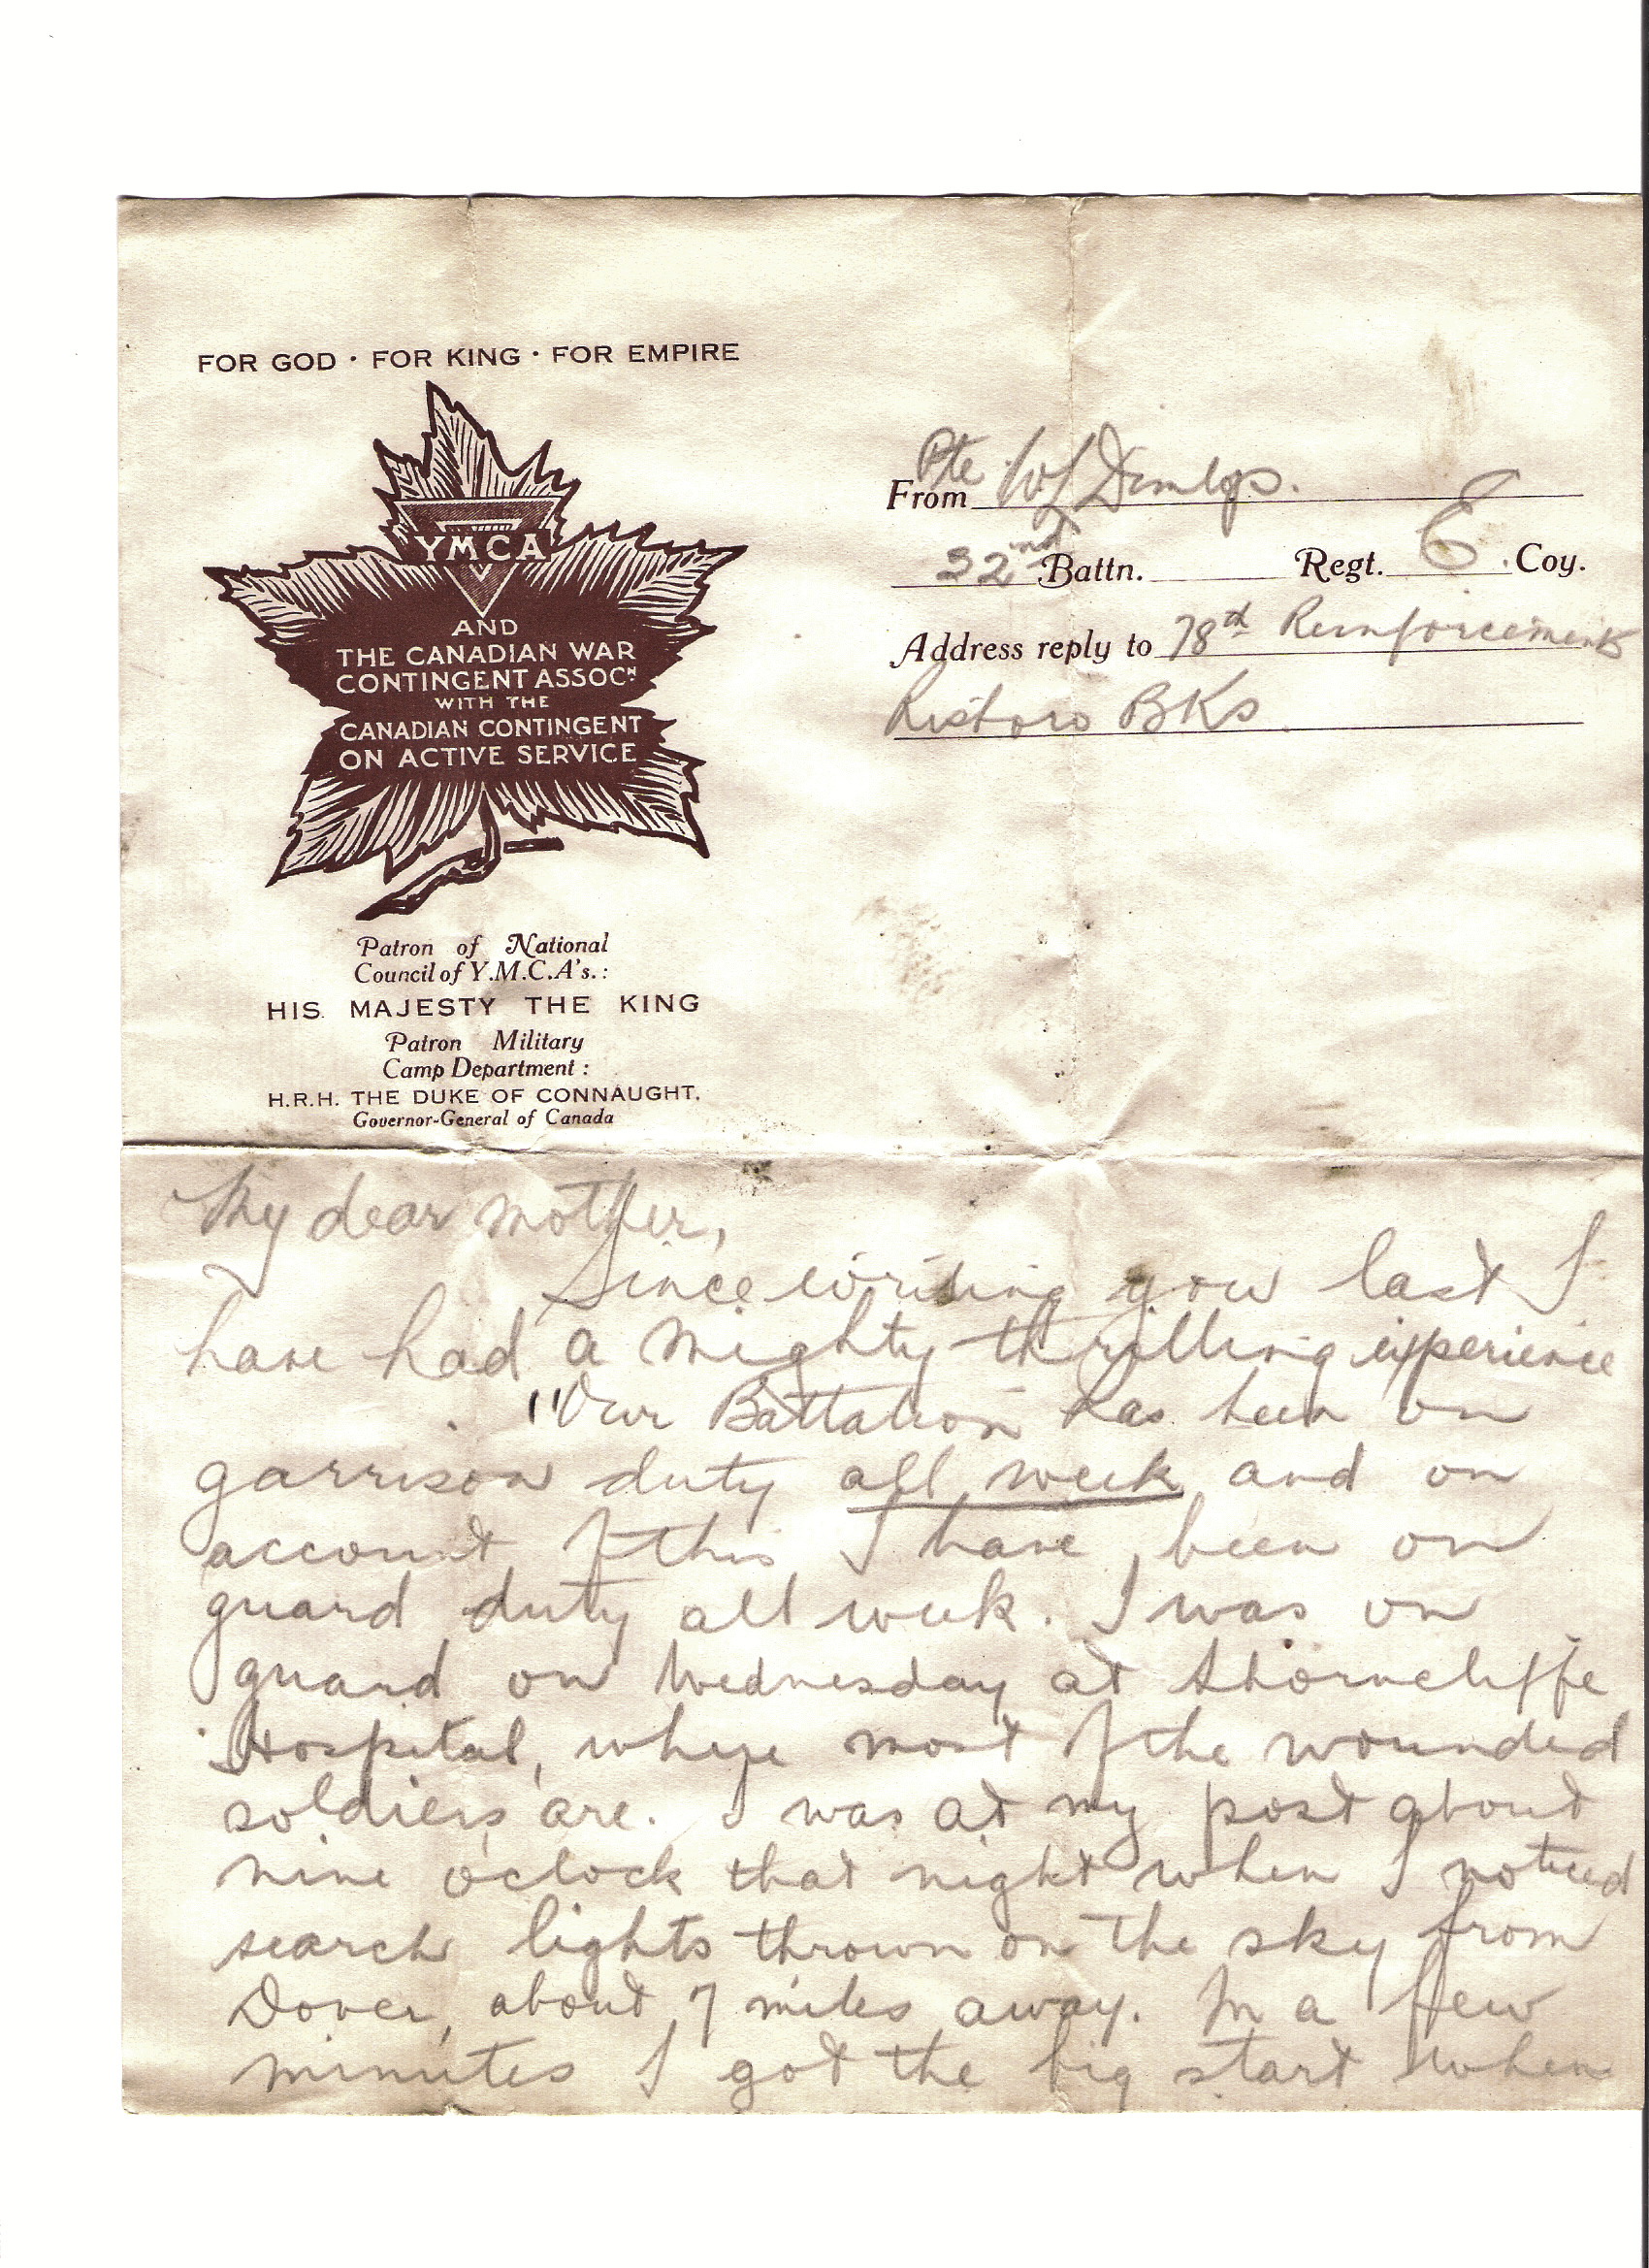 FOR GOD · FOR KING · FOR EMPIRE
YMCA
AND
THE CANADIAN WAR
CONTINGENT ASSOCN
WITH THE
CANADIAN CONTINGENT
ON ACTIVE SERVICE
Patron of National
Council of Y.M.C.A's.:
HIS MAJESTY THE KING
Patron Military
Camp Department:
H.R.H. THE DUKE OF CONNAUGHT,
Governor-General of Canada
From Pte W J Dunlop.
32nd Battn. Regt. E. Coy.
Address reply to 78th Reinforcements
Risboro BKs
My dear mother,
Since writing you last I
have had a mighty thrilling experience
"Our Battalion has been on
garrison duty all week and on
account of this I have been on
guard duty all week. I was on
guard on Wednesday at Shorncliffe
Hospital, where most of the wounded
soldiers are. I was at my post about
nine o'clock that night when I noticed
search lights thrown on the sky from
Dover, about 7 miles away. In a few
minutes I got the big start when